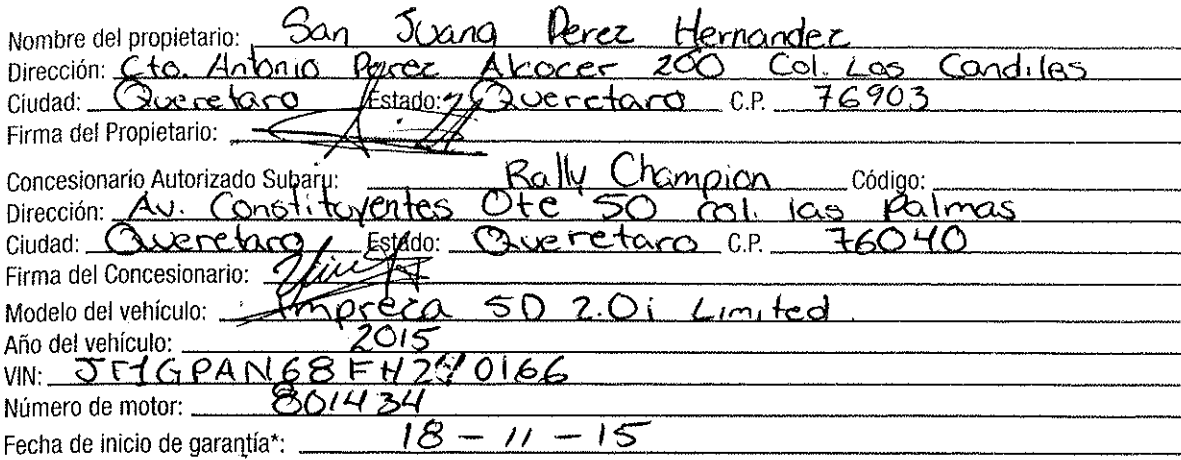 Nombre del propietario: San Juana Perez Hernandez
Dirección: Cto. Antonio Perez Alcocer 200 Col. Los Candiles
Ciudad: Queretaro Estado: Queretaro C.P. 76903
Firma del Propietario:
Concesionario Autorizado Subaru: Rally Champion Código:
Dirección: Av. Constituyentes Ote 50 col. las Palmas
Ciudad: Queretaro Estado: Queretaro C.P. 76040
Firma del Concesionario:
Modelo del vehículo: Impreza 5D 2.0i Limited
Año del vehículo: 2015
VIN:
Número de motor: 801434
Fecha de inicio de garantía*: 18 - 11 - 15